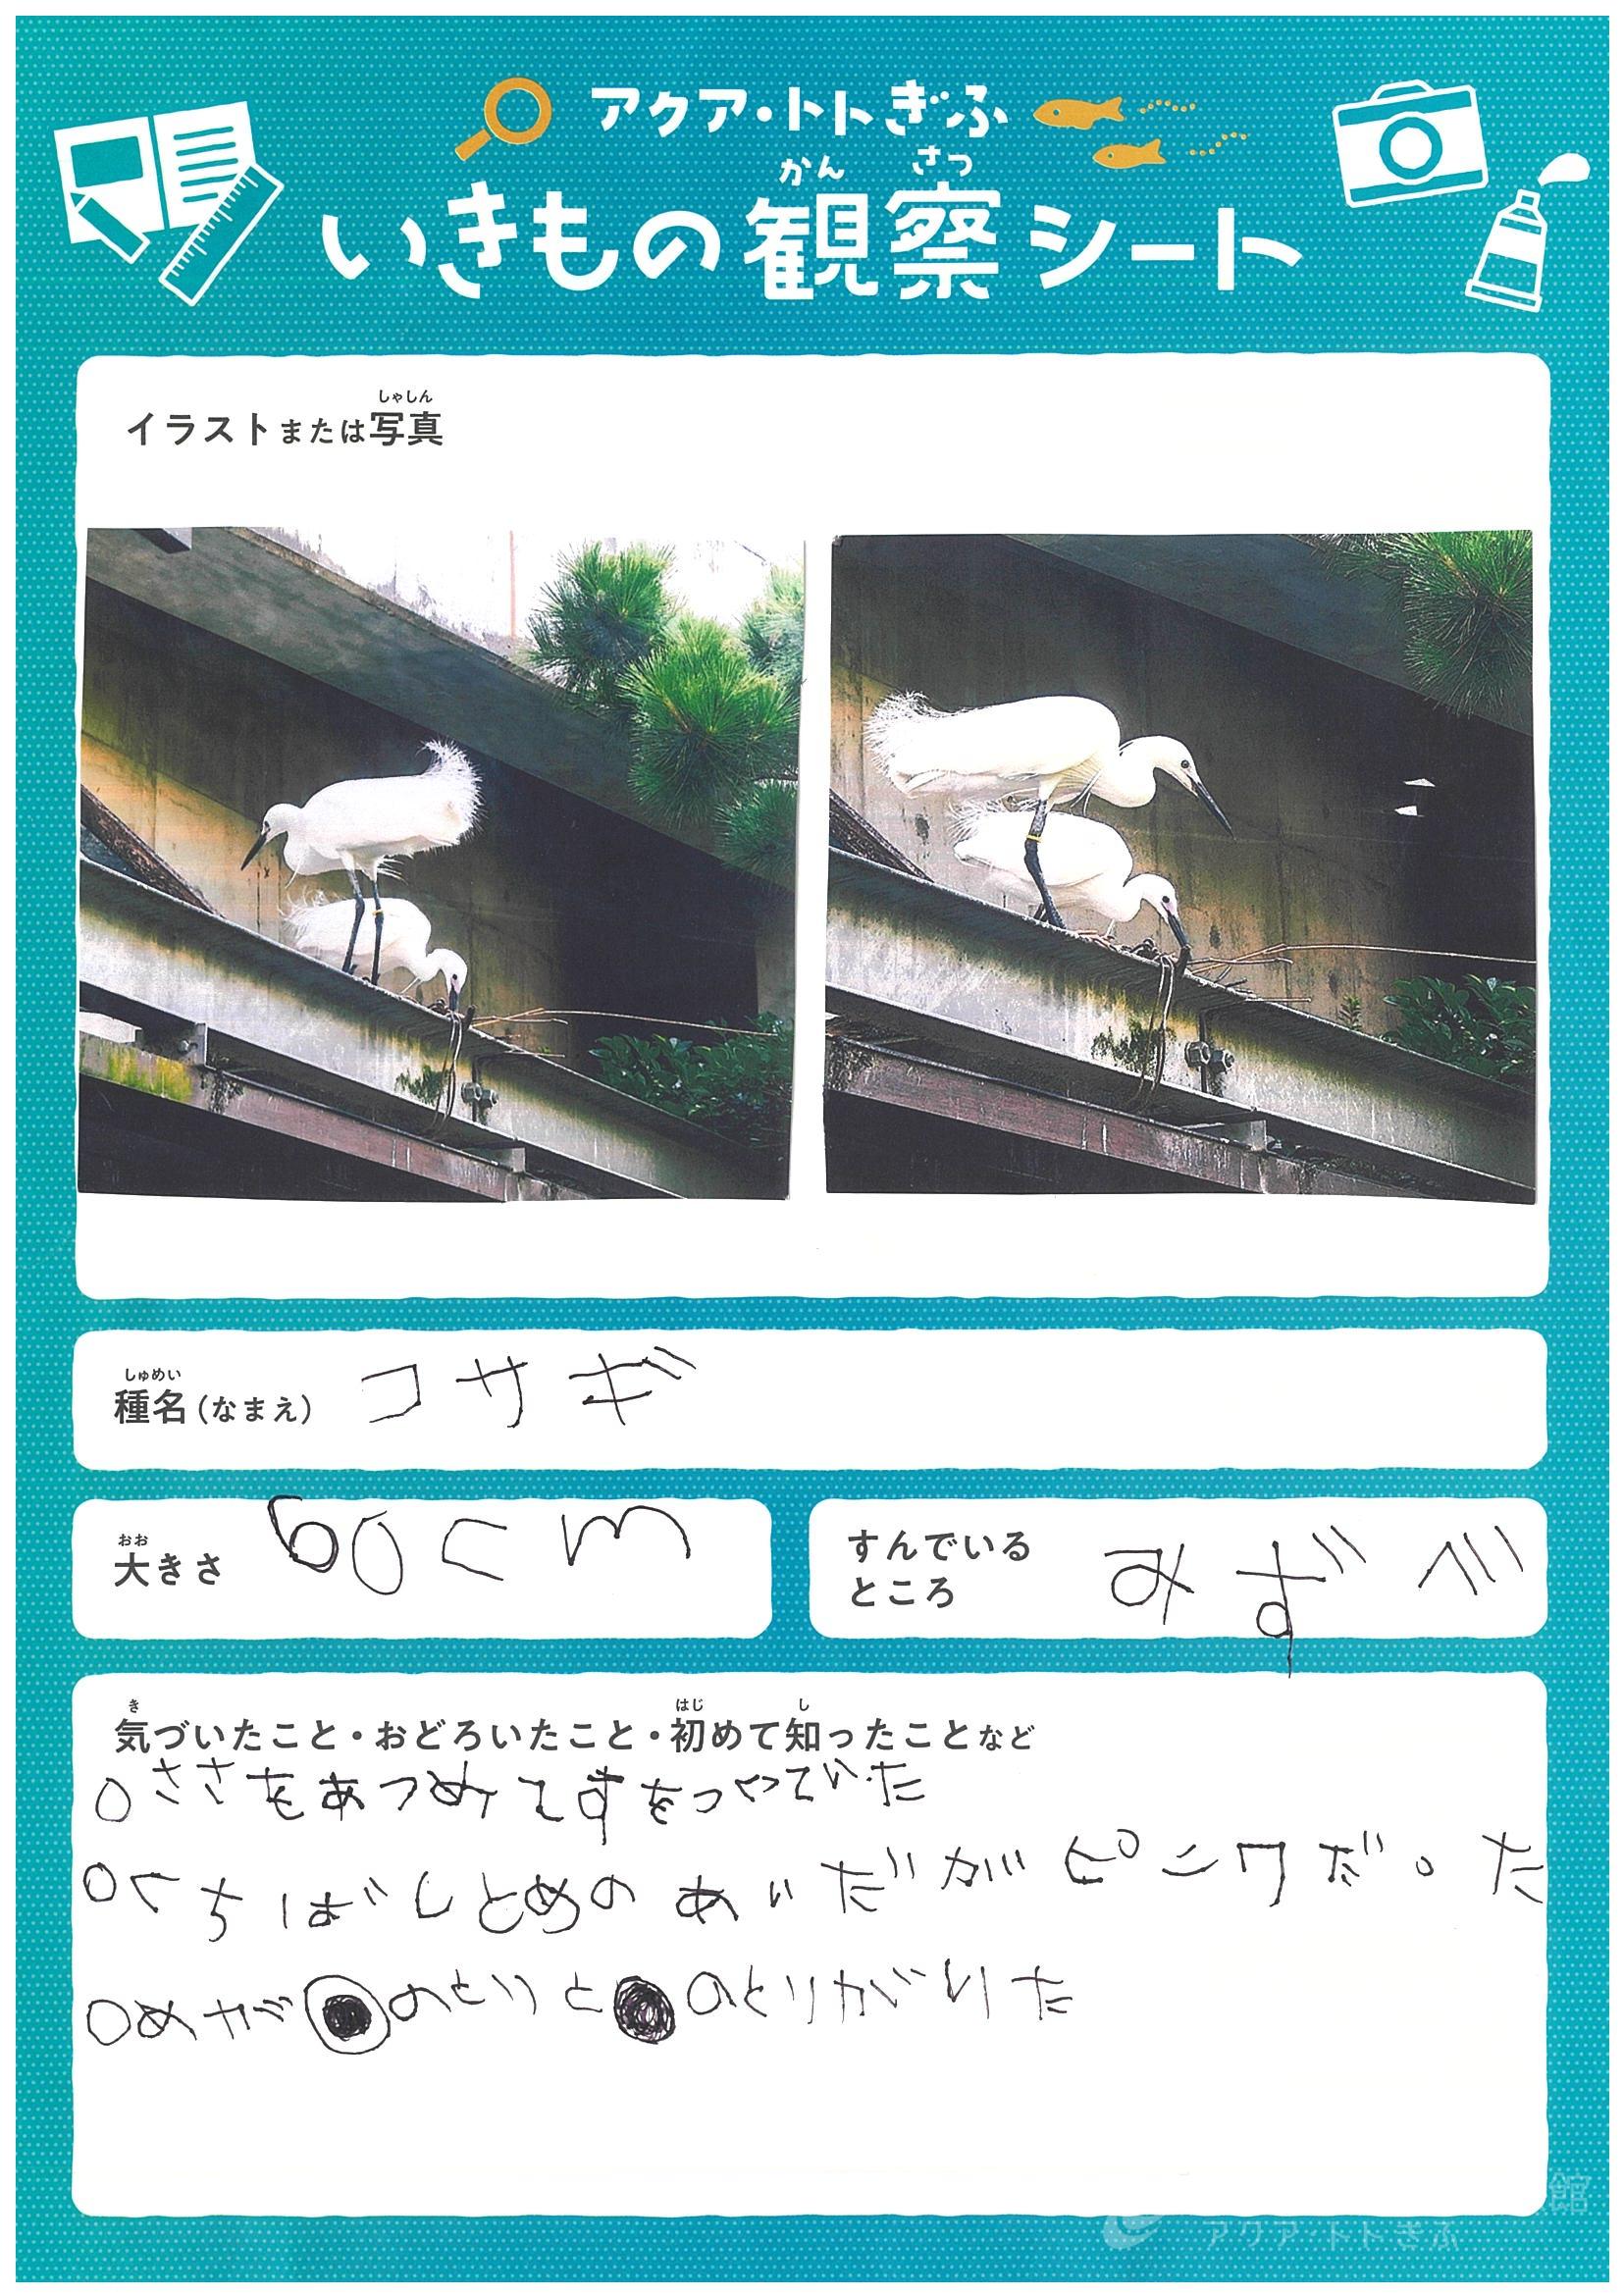 アクア・トトぎふ
かんさつ
いきもの観察シート
しゃしん
イラストまたは写真
しゅめい
種名(なまえ) コサギ
おお
大きさ 60cm
すんでいる
ところ みずべ
き はじ し
気づいたこと・おどろいたこと・初めて知ったことなど
○ささをあつめてすを
○くちばしとめのあいだがピンクだった
○めが のとりと のとりがいた
館
アクア・トトぎふ